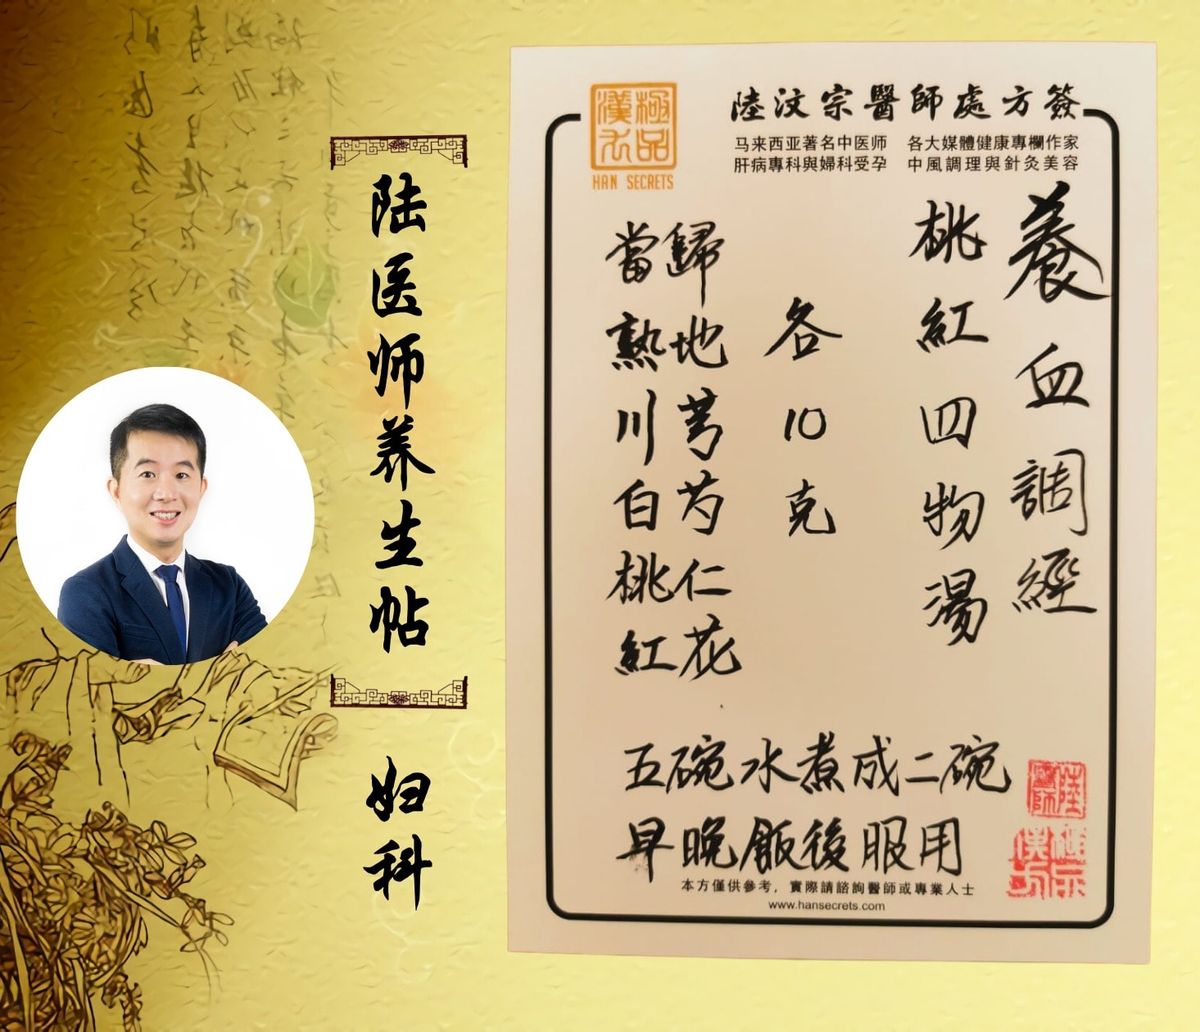 陆医师养生帖
妇科
漢極
方品
HAN SECRETS
陸汶宗醫師處方簽
马来西亚著名中医师 各大媒體健康專欄作家
肝病專科與婦科受孕 中風調理與針灸美容
養血調經
桃紅四物湯
各10克
當歸
熟地
川芎
白芍
桃仁
紅花
五碗水煮成二碗
早晚飯後服用
本方僅供參考，實際請諮詢醫師或專業人士
www.hansecrets.com